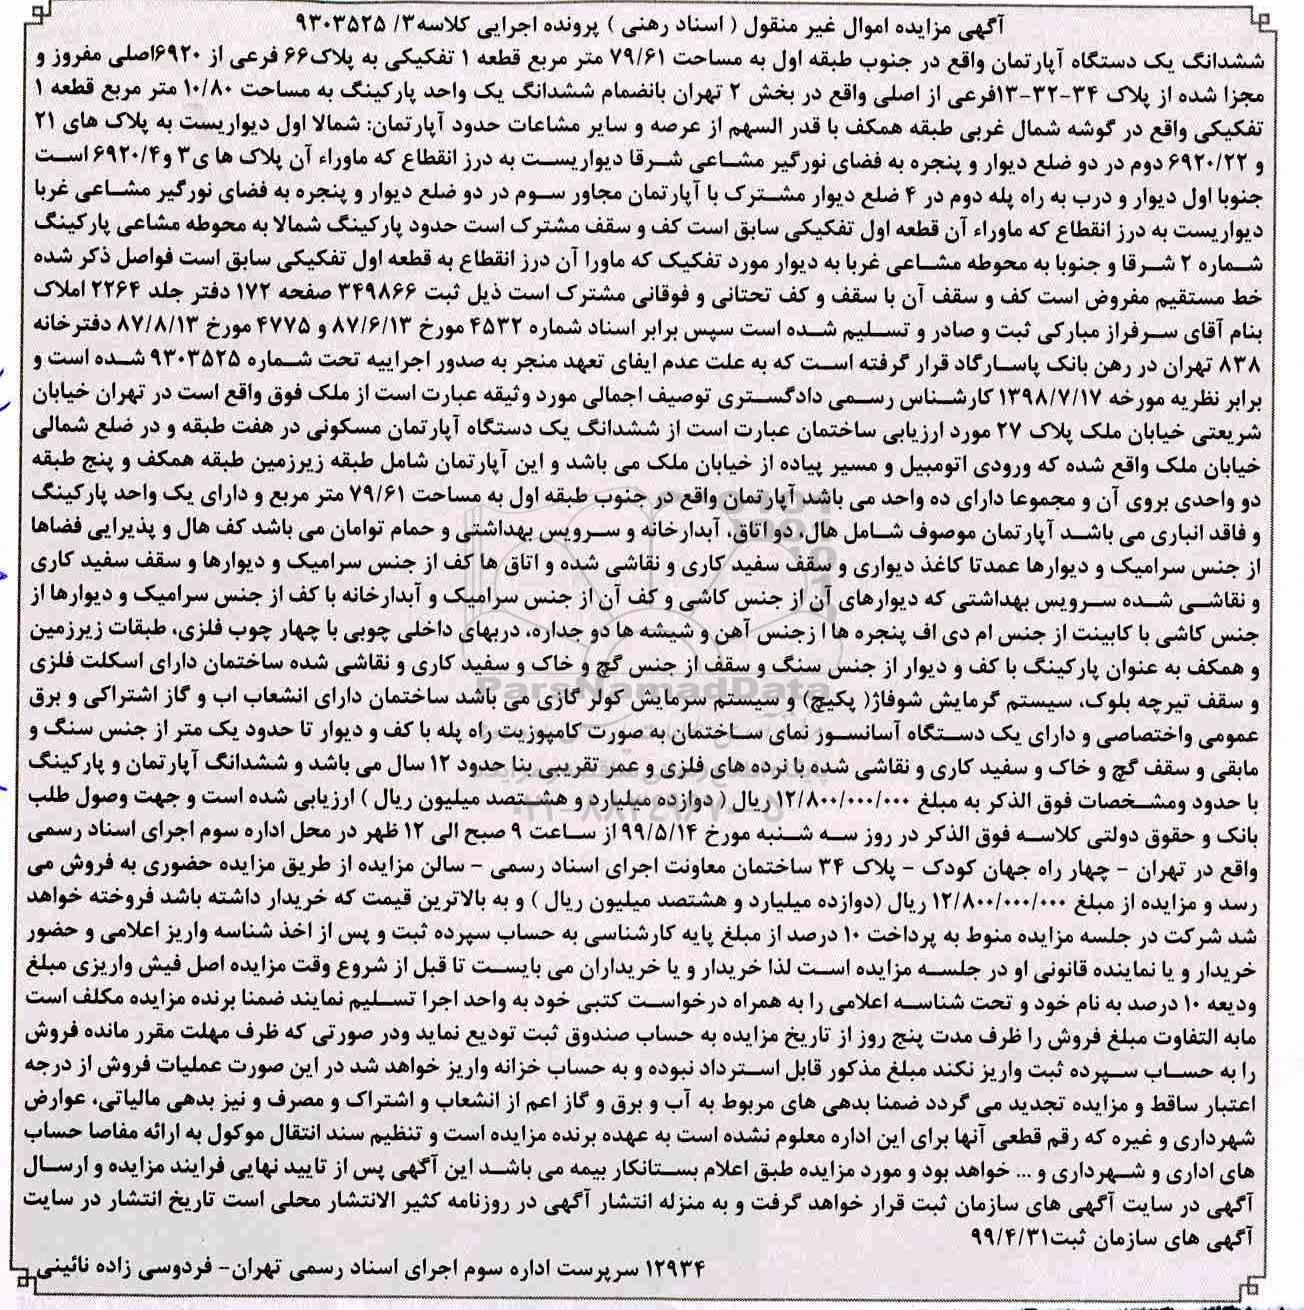 آگهی مزایده اموال غیر منقول ( اسناد رهنی ) پرونده اجرایی کلاسه۳/ ۹۳۰۳۵۲۵
ششدانگ یک دستگاه آپارتمان واقع در جنوب طبقه اول به مساحت ۷۹/۶۱ متر مربع قطعه ۱ تفکیکی به پلاک۶۶ فرعی از ۶۹۲۰اصلی مفروز و
مجزا شده از پلاک ۳۴-۳۲-۱۳فرعی از اصلی واقع در بخش ۲ تهران بانضمام ششدانگ یک واحد پارکینگ به مساحت ۱۰/۸۰ متر مربع قطعه ۱
تفکیکی واقع در گوشه شمال غربی طبقه همکف با قدر السهم از عرصه و سایر مشاعات حدود آپارتمان: شمالا اول دیواریست به پلاک های ۲۱
و ۶۹۲۰/۲۲ دوم در دو ضلع دیوار و پنجره به فضای نورگیر مشاعی شرقا دیواریست به درز انقطاع که ماوراء آن پلاک ها ی۳ و۶۹۲۰/۴ است
جنوبا اول دیوار و درب به راه پله دوم در ۴ ضلع دیوار مشترک با آپارتمان مجاور سوم در دو ضلع دیوار و پنجره به فضای نورگیر مشاعی غربا
دیواریست به درز انقطاع که ماوراء آن قطعه اول تفکیکی سابق است کف و سقف مشترک است حدود پارکینگ شمالا به محوطه مشاعی پارکینگ
شماره ۲ شرقا و جنوبا به محوطه مشاعی غربا به دیوار مورد تفکیک که ماورا آن درز انقطاع به قطعه اول تفکیکی سابق است فواصل ذکر شده
خط مستقیم مفروض است کف و سقف آن با سقف و کف تحتانی و فوقانی مشترک است ذیل ثبت ۳۴۹۸۶۶ صفحه ۱۷۲ دفتر جلد ۲۲۶۴ املاک
بنام آقای سرفراز مبارکی ثبت و صادر و تسلیم شده است سپس برابر اسناد شماره ۴۵۳۲ مورخ ۸۷/۶/۱۳ و ۴۷۷۵ مورخ ۸۷/۸/۱۳ دفترخانه
۸۳۸ تهران در رهن بانک پاسارگاد قرار گرفته است که به علت عدم ایفای تعهد منجر به صدور اجراییه تحت شماره ۹۳۰۳۵۲۵ شده است و
برابر نظریه مورخه ۱۳۹۸/۷/۱۷ کارشناس رسمی دادگستری توصیف اجمالی مورد وثیقه عبارت است از ملک فوق واقع است در تهران خیابان
شریعتی خیابان ملک پلاک ۲۷ مورد ارزیابی ساختمان عبارت است از ششدانگ یک دستگاه آپارتمان مسکونی در هفت طبقه و در ضلع شمالی
خیابان ملک واقع شده که ورودی اتومبیل و مسیر پیاده از خیابان ملک می باشد و این آپارتمان شامل طبقه زیرزمین طبقه همکف و پنج طبقه
دو واحدی بروی آن و مجموعا دارای ده واحد می باشد آپارتمان واقع در جنوب طبقه اول به مساحت ۷۹/۶۱ متر مربع و دارای یک واحد پارکینگ
و فاقد انباری می باشد آپارتمان موصوف شامل هال، دو اتاق، آبدارخانه و سرویس بهداشتی و حمام توامان می باشد کف هال و پذیرایی فضاها
از جنس سرامیک و دیوارها عمدتا کاغذ دیواری و سقف سفید کاری و نقاشی شده و اتاق ها کف از جنس سرامیک و دیوارها و سقف سفید کاری
و نقاشی شده سرویس بهداشتی که دیوارهای آن از جنس کاشی و کف آن از جنس سرامیک و آبدارخانه با کف از جنس سرامیک و دیوارها از
جنس کاشی با کابینت از جنس ام دی اف پنجره ها ا زجنس آهن و شیشه ها دو جداره، دربهای داخلی چوبی با چهار چوب فلزی، طبقات زیرزمین
و همکف به عنوان پارکینگ با کف و دیوار از جنس سنگ و سقف از جنس گچ و خاک و سفید کاری و نقاشی شده ساختمان دارای اسکلت فلزی
و سقف تیرچه بلوک، سیستم گرمایش شوفاژ( پکیج) و سیستم سرمایش کولر گازی می باشد ساختمان دارای انشعاب اب و گاز اشتراکی و برق
عمومی واختصاصی و دارای یک دستگاه آسانسور نمای ساختمان به صورت کامپوزیت راه پله با کف و دیوار تا حدود یک متر از جنس سنگ و
مابقی و سقف گچ و خاک و سفید کاری و نقاشی شده با نرده های فلزی و عمر تقریبی بنا حدود ۱۲ سال می باشد و ششدانگ آپارتمان و پارکینگ
با حدود ومشخصات فوق الذکر به مبلغ ۱۲/۸۰۰/۰۰۰/۰۰۰ ریال ( دوازده میلیارد و هشتصد میلیون ریال ) ارزیابی شده است و جهت وصول طلب
بانک و حقوق دولتی کلاسه فوق الذکر در روز سه شنبه مورخ ۹۹/۵/۱۴ از ساعت ۹ صبح الی ۱۲ ظهر در محل اداره سوم اجرای اسناد رسمی
واقع در تهران - چهار راه جهان کودک - پلاک ۳۴ ساختمان معاونت اجرای اسناد رسمی - سالن مزایده از طریق مزایده حضوری به فروش می
رسد و مزایده از مبلغ ۱۲/۸۰۰/۰۰۰/۰۰۰ ریال (دوازده میلیارد و هشتصد میلیون ریال ) و به بالاترین قیمت که خریدار داشته باشد فروخته خواهد
شد شرکت در جلسه مزایده منوط به پرداخت ۱۰ درصد از مبلغ پایه کارشناسی به حساب سپرده ثبت و پس از اخذ شناسه واریز اعلامی و حضور
خریدار و یا نماینده قانونی او در جلسه مزایده است لذا خریدار و یا خریداران می بایست تا قبل از شروع وقت مزایده اصل فیش واریزی مبلغ
ودیعه ۱۰ درصد به نام خود و تحت شناسه اعلامی را به همراه درخواست کتبی خود به واحد اجرا تسلیم نمایند ضمنا برنده مزایده مکلف است
مابه التفاوت مبلغ فروش را ظرف مدت پنج روز از تاریخ مزایده به حساب صندوق ثبت تودیع نماید ودر صورتی که ظرف مهلت مقرر مانده فروش
را به حساب سپرده ثبت واریز نکند مبلغ مذکور قابل استرداد نبوده و به حساب خزانه واریز خواهد شد در این صورت عملیات فروش از درجه
اعتبار ساقط و مزایده تجدید می گردد ضمنا بدهی های مربوط به آب و برق و گاز اعم از انشعاب و اشتراک و مصرف و نیز بدهی مالیاتی، عوارض
شهرداری و غیره که رقم قطعی آنها برای این اداره معلوم نشده است به عهده برنده مزایده است و تنظیم سند انتقال موکول به ارائه مفاصا حساب
های اداری و شهرداری و ... خواهد بود و مورد مزایده طبق اعلام بستانکار بیمه می باشد این آگهی پس از تایید نهایی فرایند مزایده و ارسال
آگهی در سایت آگهی های سازمان ثبت قرار خواهد گرفت و به منزله انتشار آگهی در روزنامه کثیر الانتشار محلی است تاریخ انتشار در سایت
آگهی های سازمان ثبت۹۹/۴/۳۱
۱۲۹۳۴ سرپرست اداره سوم اجرای اسناد رسمی تهران- فردوسی زاده نائینی
ParsNamadData